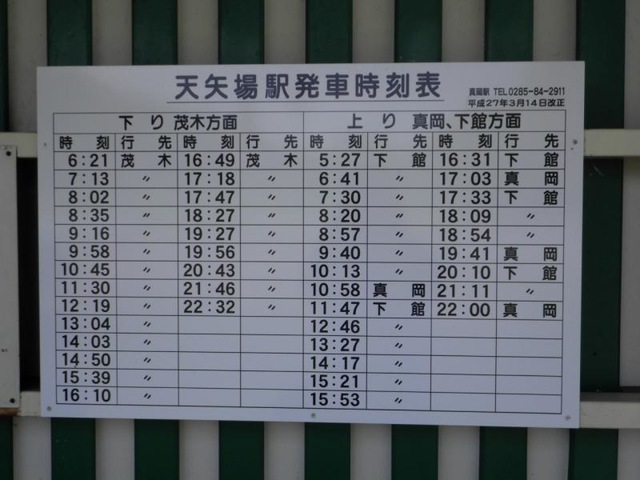 天矢場駅発車時刻表
真岡駅 TEL0285-84-2911
平成27年3月14日改正
下り 茂木方面 上り 真岡、下館方面
時刻 行先 時刻 行先 時刻 行先 時刻 行先
6:21 茂木 16:49 茂木 5:27 下館 16:31 下館
7:13 〃 17:18 〃 6:41 〃 17:03 真岡
8:02 〃 17:47 〃 7:30 〃 17:33 下館
8:35 〃 18:27 〃 8:20 〃 18:09 〃
9:16 〃 19:27 〃 8:57 〃 18:54 〃
9:58 〃 19:56 〃 9:40 〃 19:41 真岡
10:45 〃 20:43 〃 10:13 〃 20:10 下館
11:30 〃 21:46 〃 10:58 真岡 21:11 〃
12:19 〃 22:32 〃 11:47 下館 22:00 真岡
13:04 〃 12:46 〃
14:03 〃 13:27 〃
14:50 〃 14:17 〃
15:39 〃 15:21 〃
16:10 〃 15:53 〃